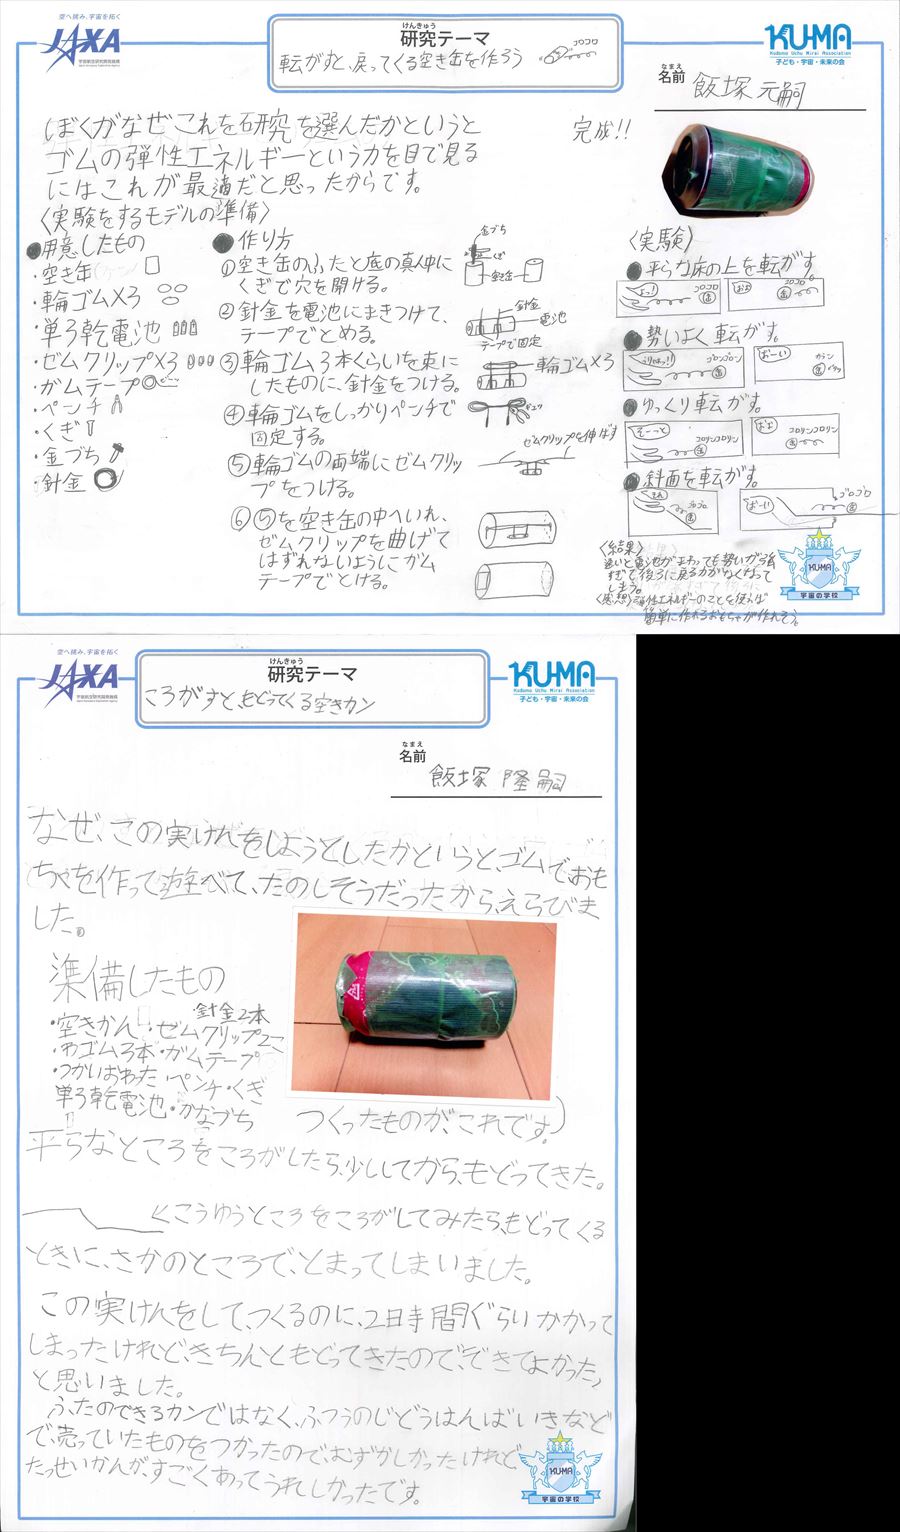 空へ挑み、宇宙を拓く
JAXA
宇宙航空研究開発機構
Japan Aerospace Exploration Agency
けんきゅう
研究テーマ
転がすと、戻ってくる空き缶を作ろう
コロコロ
KU-MA
Kodomo Uchu Mirai Association
子ども・宇宙・未来の会
なまえ
名前
飯塚 元嗣
ぼくがなぜこれを研究を選んだかというと
ゴムの弾性エネルギーという力を目で見る
にはこれが最適だと思ったからです。
完成!!
〈実験をするモデルの準備〉
●用意したもの
・空き缶
・輪ゴム×3
・単3乾電池
・ゼムクリップ×3
・ガムテープ
・ペンチ
・くぎ
・金づち
・針金
●作り方
①空き缶のふたと底の真中に
くぎで穴を開ける。
②針金を電池にまきつけて、
テープでとめる。
③輪ゴム3本くらいを束に
したものに、針金をつける。
④輪ゴムをしっかりペンチで
固定する。
⑤輪ゴムの両端にゼムクリッ
プをつける。
⑥⑤を空き缶の中へいれ、
ゼムクリップを曲げて
はずれないようにガム
テープでとける。
金づち
くぎ
空き缶
針金
電池
テープで固定
輪ゴム×3
ギュッ
ゼムクリップを伸ばす
〈実験〉
●平らな床の上を転がす。
コロコロ
缶
コロコロ
缶
●勢いよく転がす。
ゴロンゴロン
缶
おーい
カラン
缶
●ゆっくり転がす。
そーっと
コロリンコロリン
缶
コロリンコロリン
缶
●斜面を転がす。
コロコロ
缶
おーい
ゴロゴロ
缶
〈結果〉
速いと電池がまわっても勢いが強
すぎて後ろに戻る力がなくなって
しまう。
〈感想〉弾性エネルギーのことを使えば
簡単に作れるおもちゃが作れそう。
KUMA
宇宙の学校
空へ挑み、宇宙を拓く
JAXA
宇宙航空研究開発機構
Japan Aerospace Exploration Agency
けんきゅう
研究テーマ
ころがすと、もどってくる空きカン
KU-MA
Kodomo Uchu Mirai Association
子ども・宇宙・未来の会
なまえ
名前
飯塚 隆嗣
なぜ、この実けんをしようとしたかというと、ゴムで、おも
ちゃを作って遊べて、たのしそうだったから、えらびま
した。
準備したもの
針金2本
・空きかん・ゼムクリップ2こ
・わゴム3本・ガムテープ
・つかいおわった ペンチ・くぎ
単3乾電池・かなづち
つくったものが、これです。)
平らなところをころがしたら、少ししてから、もどってきた。
くこうゆうところをころがしてみたら、もどってくる
ときに、さかのところで、とまってしまいました。
この実けんをして、つくるのに、2時間ぐらいかかって
しまったけれど、きちんともどってきたので、できてよかった、
と思いました。
ふたのできるカンではなく、ふつうのじどうはんばいきなど
で、売っていたものをつかったので、むずかしかったけれど、
たっせいかんが、すごくあってうれしかったです。
KUMA
宇宙の学校